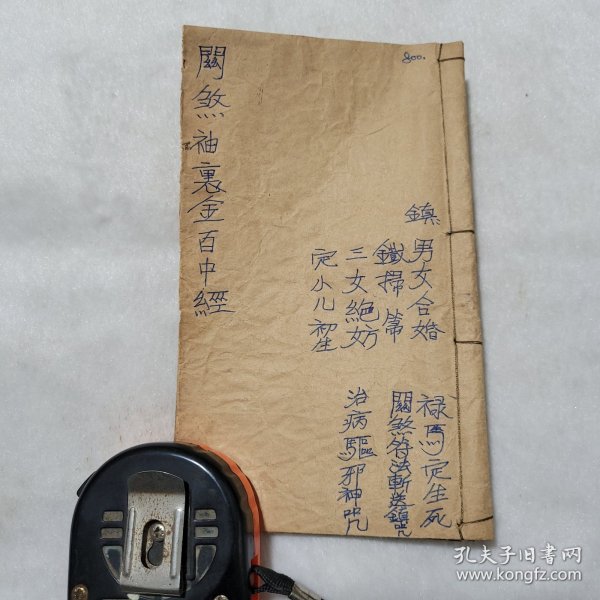 關煞袖裏金百中經
800.
鎮
男女合婚
鐵掃箒
三女絕妨
定小儿初生
禄馬定生死
關煞符法斬送鎮咒
治病驅邪神咒
孔夫子旧书网
www.kongfz.com